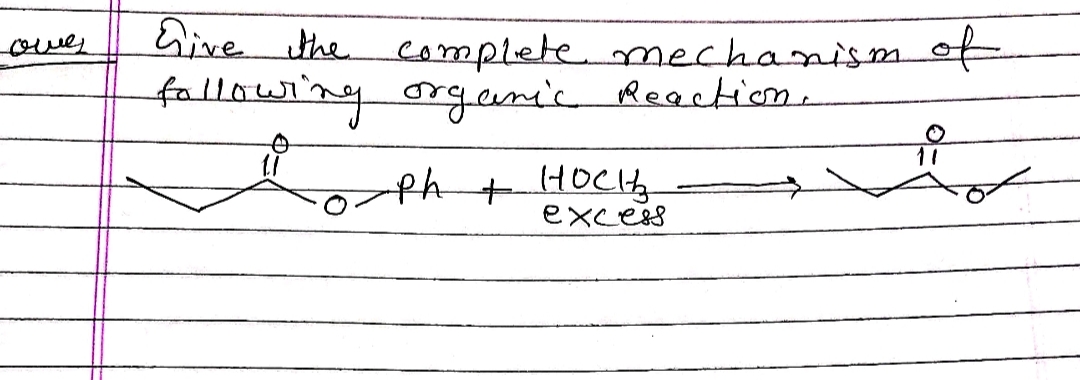 Give the complete mechanism of
following organic Reaction.
O O
O Ph + HOCH3 O
excess